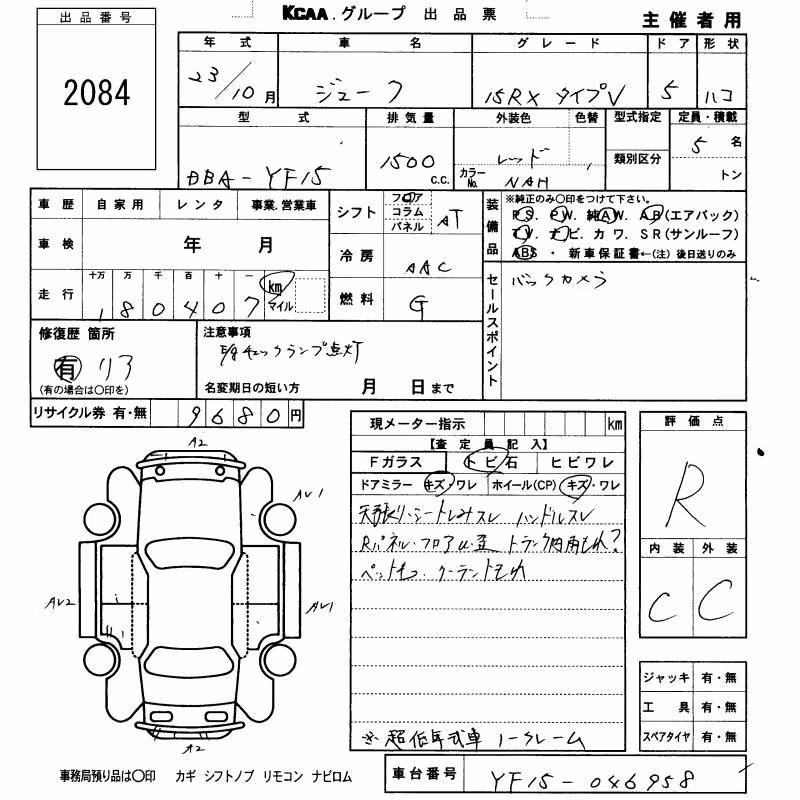 出品番号
2084
KCAA.グループ 出品票
主催者用
年式 車名 グレード ドア 形状
23/10月 ジューク 15RX タイプV 5 ハコ
型式 排気量 外装色 色替 型式指定 定員・積載
DBA-YF15 1500 c.c. レッド カラーNo. NAH 類別区分 5名 トン
車歴 自家用 レンタ 事業.営業車
車検 年 月
十万 万 千 百 十 一
走行 180407 km マイル
シフト フロア コラム パネル AT
冷房 AAC
燃料 G
装備品
※純正のみ〇印をつけて下さい。
PS. PW. 純AW. AB(エアバック)
TV. ナビ. カワ. SR(サンルーフ)
ABS ・ 新車保証書←(注) 後日送りのみ
セールスポイント
バックカメラ
修復歴 箇所
有 リア
(有の場合は〇印を)
注意事項
チェックランプ点灯
名変期日の短い方 月 日まで
リサイクル券 有・無 9680円
現メーター指示 km
【査定員記入】
Fガラス トビ石 ヒビワレ
ドアミラー キズ・ワレ ホイール(CP) キズ・ワレ
天張り、シートしみスレ ハンドルスレ
Rパネル・フロアム歪 トランク内雨もれ?
クーラントもれ
※超低年式車 ノークレーム
評価点
R
内装 外装
C C
A2
AV1
AV2
AV1
A2
ジャッキ 有・無
工具 有・無
スペアタイヤ 有・無
事務局預り品は〇印 カギ シフトノブ リモコン ナビロム
車台番号 YF15-046958